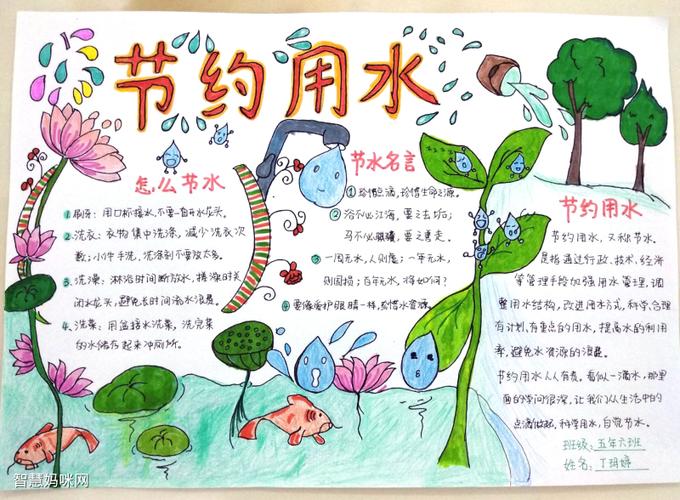 节约用水
怎么节水
1.刷牙：用口杯接水，不要一直开水龙头。
2.洗衣：衣物集中洗涤，减少洗衣次
数；小件手洗，洗涤剂不要放太多。
3.洗澡：淋浴时间断放水，搓澡时关
闭水龙头，避免长时间流水浪费。
4.洗菜：用盆接水洗菜，洗完菜
的水储存起来冲厕所。
节水名言
①珍惜点滴，珍惜生命之源。
②浴不必江海，要之去垢；
马不必骐骥，要之善走。
③一周无水，人则危；一年无水，
则国损；百年无水，将如何？
④要像爱护眼睛一样，珍惜水资源。
节约用水
节约用水，又称节水。
是指通过行政、技术、经济
等管理手段加强用水管理，调
整用水结构，改进用水方式，科学、合理
有计划、有重点的用水，提高水的利用
率，避免水资源的浪费。
节约用水人人有责。看似一滴水，那里
面的学问很深，让我们从生活中的
点滴做起，科学用水，自觉节水。
班级：五年六班
姓名：丁玥婷
智慧妈咪网